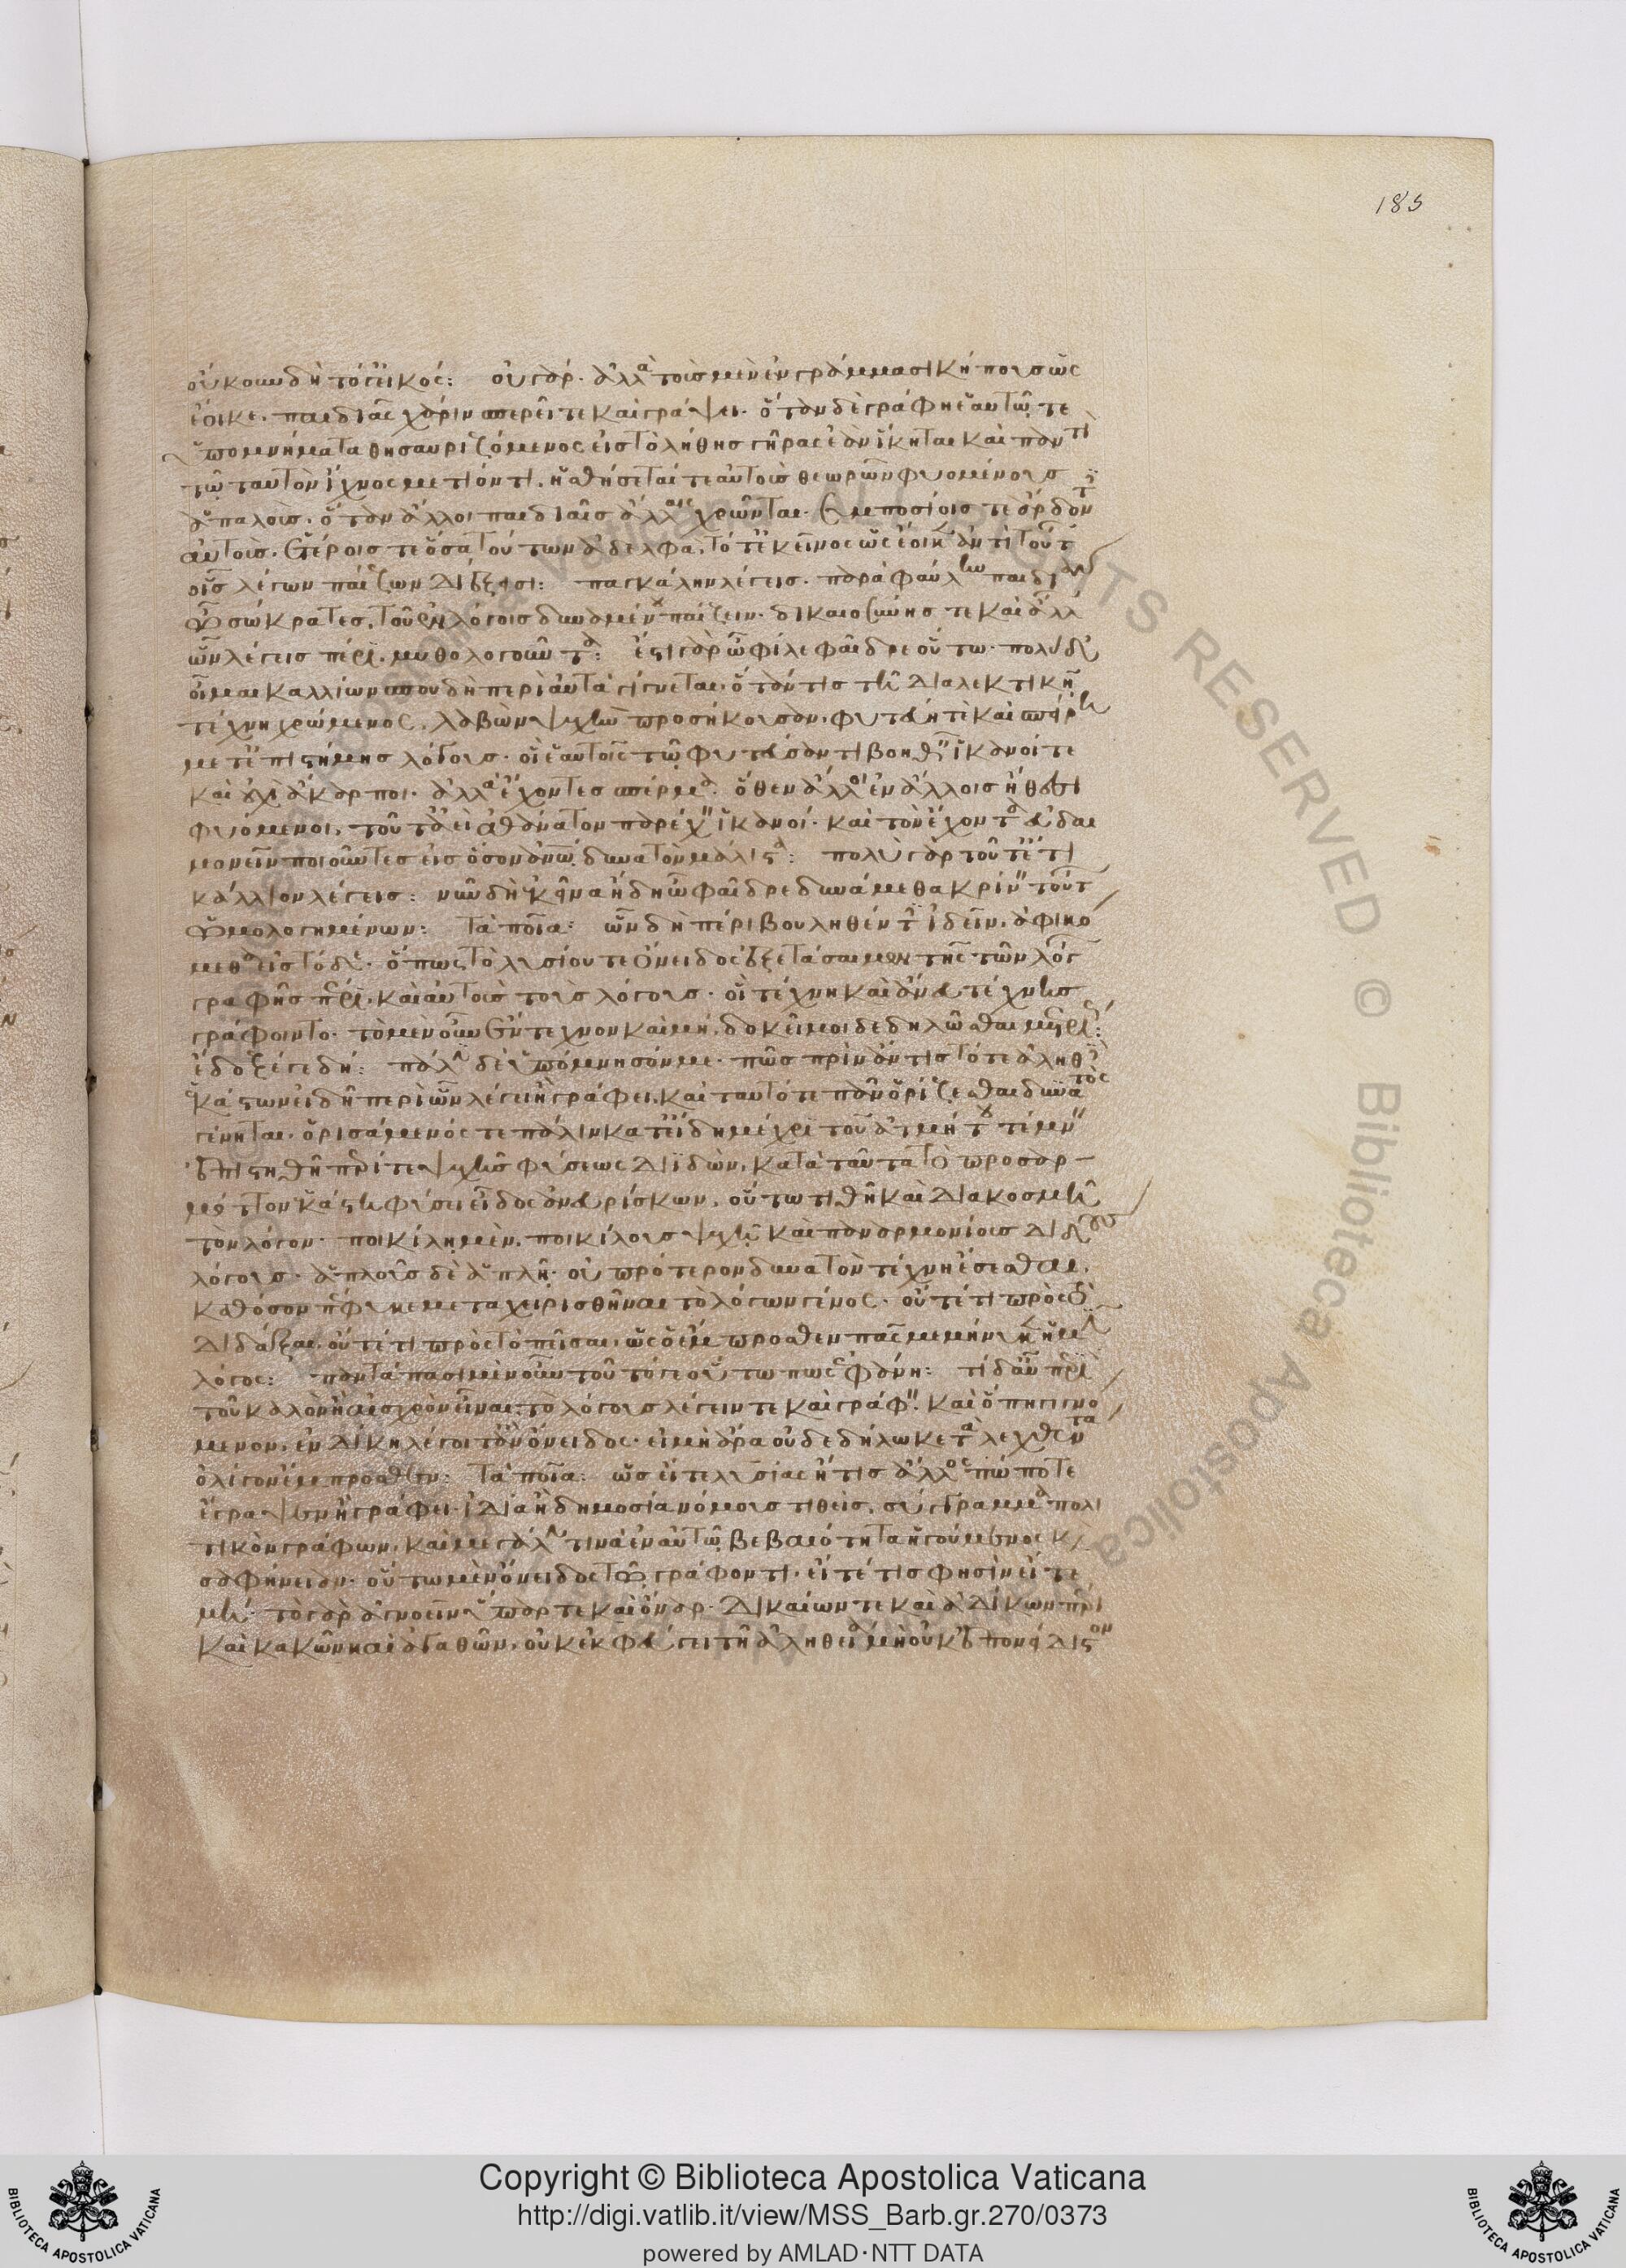 185
οὔκουν δὴ τό γ' εἰκός: οὐ γάρ· ἀλλὰ τοὺς μὲν ἐν γράμμασι κήπους ὡς
ἔοικε, παιδιᾶς χάριν σπερεῖ τε καὶ γράψει· ὅταν δὲ γράφῃ ἑαυτῷ τε
ὑπομνήματα θησαυριζόμενος εἰς τὸ λήθης γῆρας ἐὰν ἵκηται καὶ παντὶ
τῷ ταυτὸν ἴχνος μετιόντι, ἡσθήσεταί τε αὐτοὺς θεωρῶν φυομένους
ἁπαλούς· ὅταν ἄλλοι παιδιαῖς ἄλλαις χρῶνται· συμποσίοις τε ἄρδοντες
αὑτούς· ἑτέροις τε ὅσα τούτων ἀδελφά, τότ' ἐκεῖνος ὡς ἔοικεν ἀντὶ τούτων
οἷς λέγων παίζων διάξει: παγκάλην λέγεις παρὰ φαύλην παιδιὰν
ὦ σώκρατες, τοῦ ἐν λόγοις δυναμένου παίζειν· δικαιοσύνης τε καὶ ἄλλων
ὧν λέγεις πέρι μυθολογοῦντα: ἔστι γὰρ ὦ φίλε φαῖδρε οὕτω· πολὺ δ'
οἶμαι καλλίων σπουδὴ περὶ αὐτὰ γίγνεται· ὅταν τις τῇ διαλεκτικῇ
τέχνῃ χρώμενος, λαβὼν ψυχὴν προσήκουσαν, φυτεύῃ τε καὶ σπείρῃ
μετ' ἐπιστήμης λόγους· οἳ ἑαυτοῖς τῷ φυτεύσαντι βοηθεῖν ἱκανοί τε
καὶ οὐχὶ ἄκαρποι· ἀλλὰ ἔχοντες σπέρμα· ὅθεν ἄλλοι ἐν ἄλλοις ἤθεσι
φυόμενοι, τοῦτ' ἀεὶ ἀθάνατον παρέχειν ἱκανοί· καὶ τὸν ἔχοντα εὐδαι
μονεῖν ποιοῦντες εἰς ὅσον ἀνθρώπῳ δυνατὸν μάλιστα: πολὺ γὰρ τοῦτ' ἔτι
κάλλιον λέγεις: νῦν δὴ ἐκεῖνα ἤδη ὦ φαῖδρε δυνάμεθα κρίνειν τούτων
ὡμολογημένων: τὰ ποῖα: ὧν δὴ πέρι βουληθέντες ἰδεῖν, ἀφικό
μεθα εἰς τόδε· ὅπως τὸ λυσίου τε ὄνειδος ἐξετάσαιμεν τῆς τῶν λόγων
γραφῆς πέρι, καὶ αὐτοὺς τοὺς λόγους· οἳ τέχνῃ καὶ ἄνευ τέχνης
γράφοιντο· τὸ μὲν οὖν ἔντεχνον καὶ μή, δοκεῖ μοι δεδηλῶσθαι μετρίως:
ἔδοξέ γε δή: πάλιν δὲ ὑπόμνησόν με πῶς· πρὶν ἄν τις τό τε ἀληθὲς
ἑκάστων εἰδῇ περὶ ὧν λέγει ἢ γράφει, κατ' αὐτό τε πᾶν ὁρίζεσθαι δυνατὸς
γένηται, ὁρισάμενός τε πάλιν κατ' εἴδη μέχρι τοῦ ἀτμήτου τέμνειν
ἐπιστηθῇ περί τε ψυχῆς φύσεως διϊδών, κατὰ ταῦτα τὸ προσαρ-
μόττον ἑκάστῃ φύσει εἶδος ἀνευρίσκων, οὕτω τιθῇ καὶ διακοσμῇ
τὸν λόγον· ποικίλῃ μὲν ποικίλους ψυχῇ καὶ παναρμονίους διδοὺς
λόγους· ἁπλοῦς δὲ ἁπλῇ· οὐ πρότερον δυνατὸν τέχνῃ ἔσεσθαι,
καθόσον πέφυκε μεταχειρισθῆναι τὸ λόγων γένος· οὔτέ τι πρὸς τὸ
διδάξαι, οὔτέ τι πρὸς τὸ πεῖσαι, ὡς ὁ ἔμπροσθεν πᾶς μεμήνυκεν ἡμῖν
λόγος: παντάπασι μὲν οὖν τοῦτό γε οὕτω πως ἐφάνη: τί δ' αὖ περὶ
τοῦ καλὸν ἢ αἰσχρὸν εἶναι, τὸ λόγους λέγειν τε καὶ γράφειν· καὶ ὅπῃ γιγνό
μενον, ἐν δίκῃ λέγοιτ' ἂν ὄνειδος· εἰ μὴ ἄρα οὐ δεδήλωκε τὰ λεχθέντα
ὀλίγον ἔμπροσθεν: τὰ ποῖα: ὡς εἴτε λυσίας ἤ τις ἄλλος πώποτε
ἔγραψεν ἢ γράφει ἰδίᾳ ἢ δημοσίᾳ νόμους τιθείς, σύγγραμμα πολι
τικὸν γράφων, καὶ μεγάλην τινὰ ἐν αὐτῷ βεβαιότητα ἡγούμενος καὶ
σαφήνειαν· οὕτω μὲν ὄνειδος τῷ γράφοντι· εἴτέ τίς φησιν εἴτε
μή· τὸ γὰρ ἀγνοεῖν ὕπαρ τε καὶ ὄναρ· δικαίων τε καὶ ἀδίκων πέρι
καὶ κακῶν καὶ ἀγαθῶν, οὐκ ἐκφεύγει τῇ ἀληθείᾳ μὴ οὐκ ἐπονείδιστον
Copyright © Biblioteca Apostolica Vaticana
http://digi.vatlib.it/view/MSS_Barb.gr.270/0373
powered by AMLAD·NTT DATA